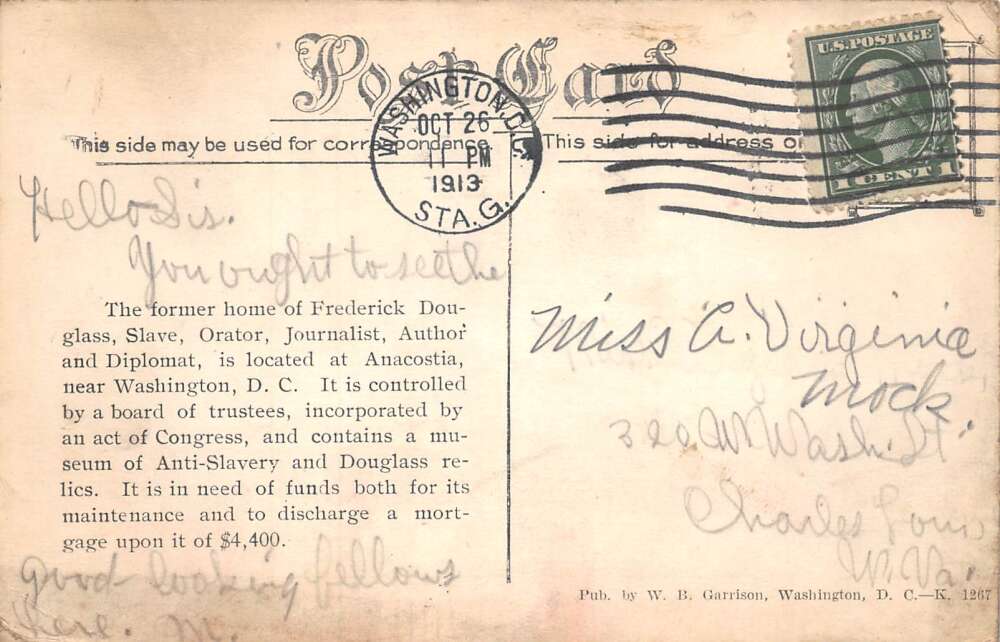 Post Card
This side may be used for correspondence.
This side for address o
WASHINGTON, D.C.
OCT 26
11 PM
1913
STA. G.
U.S. POSTAGE
1 CENT 1
Hello Sis.
You ought to see the
The former home of Frederick Dou-
glass, Slave, Orator, Journalist, Author
and Diplomat, is located at Anacostia,
near Washington, D. C. It is controlled
by a board of trustees, incorporated by
an act of Congress, and contains a mu-
seum of Anti-Slavery and Douglass re-
lics. It is in need of funds both for its
maintenance and to discharge a mort-
gage upon it of $4,400.
good looking fellows
here. M.
Miss A. Virginia
Mock.
W Wash. St.
Charles Town
W. Va.
Pub. by W. B. Garrison, Washington, D. C.—K. 1267